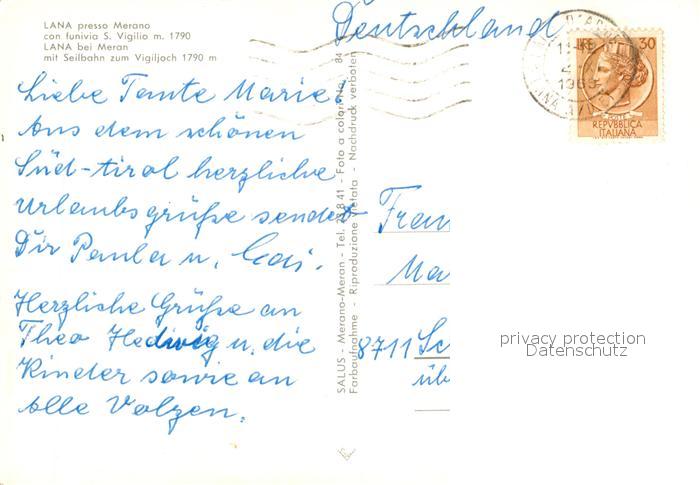 LANA presso Merano
con funivia S. Vigilio m. 1790
LANA bei Meran
mit Seilbahn zum Vigiljoch 1790 m
Deutschland
LIRE 30
POSTE
REPVBBLICA
ITALIANA
Liebe Tante Marie!
Aus dem schönen
Süd-tirol herzliche
Urlaubsgrüße sendet
Dir Paula u.
Herzliche Grüße an
Theo Hedwig u. die
Kinder sowie an
Alle Volzen.
SALUS - Merano-Meran - Tel. 23 8 41 - Foto a colori No. 84
Farbaufnahme - Riproduzione vietata - Nachdruck verboten
Frau
Ma
8711 Sc
üb
privacy protection
Datenschutz